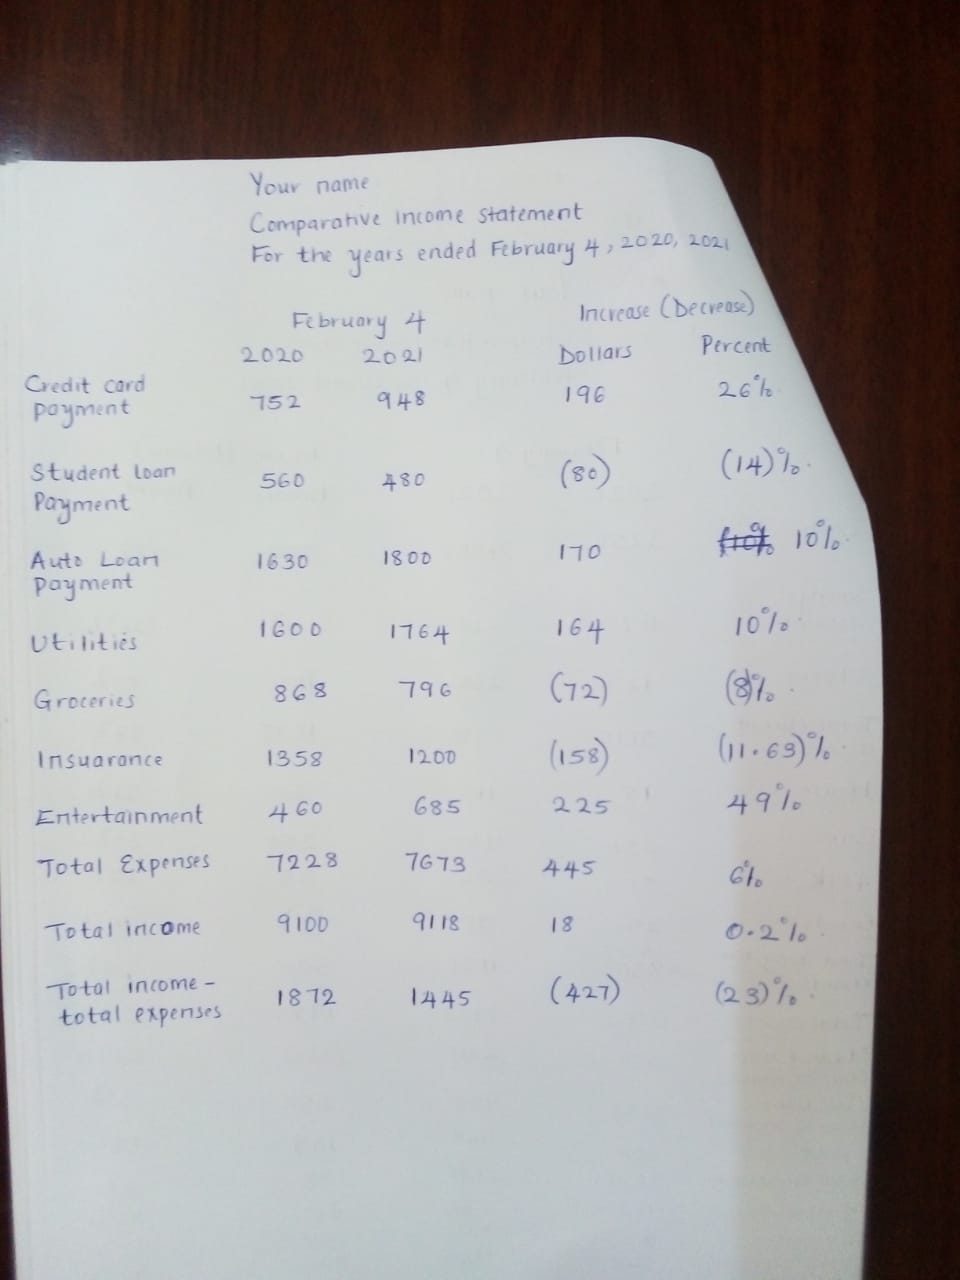 Your name
Comparative income statement
For the years ended February 4, 2020, 2021
February 4 Increase (Decrease)
2020 2021 Dollars Percent
Credit card
payment 752 948 196 26%
Student loan
Payment 560 480 (80) (14)%
Auto Loan
payment 1630 1800 170 10%
Utilities 1600 1764 164 10%
Groceries 868 796 (72) (8)%
Insuarance 1358 1200 (158) (11.63)%
Entertainment 460 685 225 49%
Total Expenses 7228 7673 445 6%
Total income 9100 9118 18 0.2%
Total income -
total expenses 1872 1445 (427) (23)%